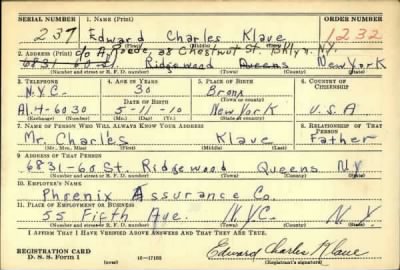 SERIAL NUMBER 1. NAME (Print) ORDER NUMBER
237 Edward Charles Klave 1232
(First) (Middle) (Last)
2. ADDRESS (Print) c/o A. 28 Chestnut St. Bklyn. N.Y.
6831-60 Ridgewood Queens New York
(Number and street or R. F. D. number) (Town) (County) (State)
3. TELEPHONE 4. AGE IN YEARS 5. PLACE OF BIRTH 6. COUNTRY OF CITIZENSHIP
N.Y.C. 30 Bronx
DATE OF BIRTH (Town or county)
Al. 4-6030 5-11-10 New York U.S.A
(Exchange) (Number) (Mo.) (Day) (Yr.) (State or country)
7. NAME OF PERSON WHO WILL ALWAYS KNOW YOUR ADDRESS 8. RELATIONSHIP OF THAT PERSON
Mr. Charles Klave Father
(Mr., Mrs., Miss) (First) (Middle) (Last)
9. ADDRESS OF THAT PERSON
6831-60 St. Ridgewood Queens N.Y
(Number and street or R. F. D. number) (Town) (County) (State)
10. EMPLOYER'S NAME
Phoenix Assurance Co.
11. PLACE OF EMPLOYMENT OR BUSINESS
55 Fifth Ave. N.Y.C. N.Y.
(Number and street or R. F. D. number) (Town) (County) (State)
I AFFIRM THAT I HAVE VERIFIED ABOVE ANSWERS AND THAT THEY ARE TRUE.
REGISTRATION CARD
D. S. S. Form 1 (over) 16-17105 Edward Charles Klave
(Registrant's signature)